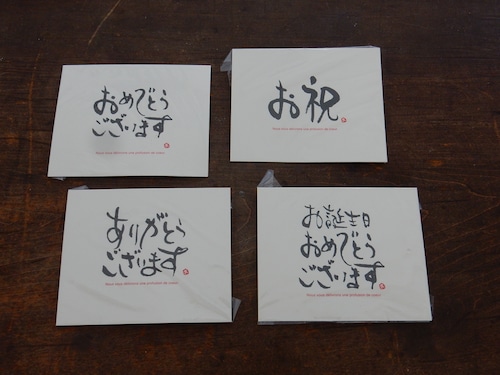 おめでとう
ございます
お祝
ありがとう
ございます
お誕生日
おめでとう
ございます